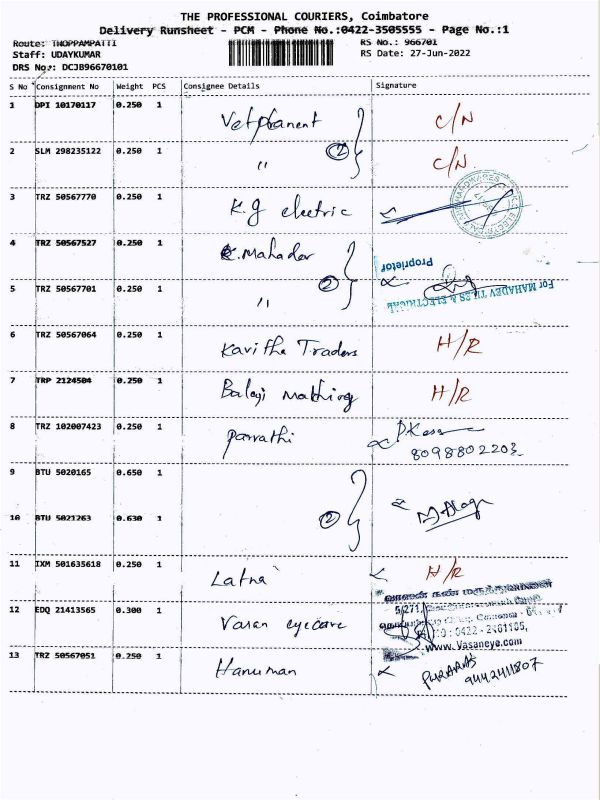 THE PROFESSIONAL COURIERS, Coimbatore
Delivery Runsheet - PCM - Phone No.:0422-3505555 - Page No.:1
Route: THOPPAMPATTI RS No.: 966701
Staff: UDAYKUMAR RS Date: 27-Jun-2022
DRS No.: DCJB96670101
S No Consignment No Weight PCS Consignee Details Signature
1 DPI 10170117 0.250 1 C/N
2 SLM 298235122 0.250 1 " 2 C/N
3 TRZ 50567770 0.250 1 K.g electric
4 TRZ 50567527 0.250 1 Mahadev
Proprietor
5 TRZ 50567701 0.250 1 " 2
For MAHADEV TILES & ELECTRICAL
6 TRZ 50567064 0.250 1 Kavitha Traders H/R
7 TRP 2124504 0.250 1 Balaji Mathing H/R
8 TRZ 102007423 0.250 1 Parvathi
8098802203
9 BTU 5020165 0.650 1
10 BTU 5021263 0.630 1 2
11 IXM 501635618 0.250 1 Latha H/R
12 EDQ 21413565 0.300 1 Vasan eyecare
5/271,
www.Vasaneye.com
13 TRZ 50567051 0.250 1 Hanuman
9442411807